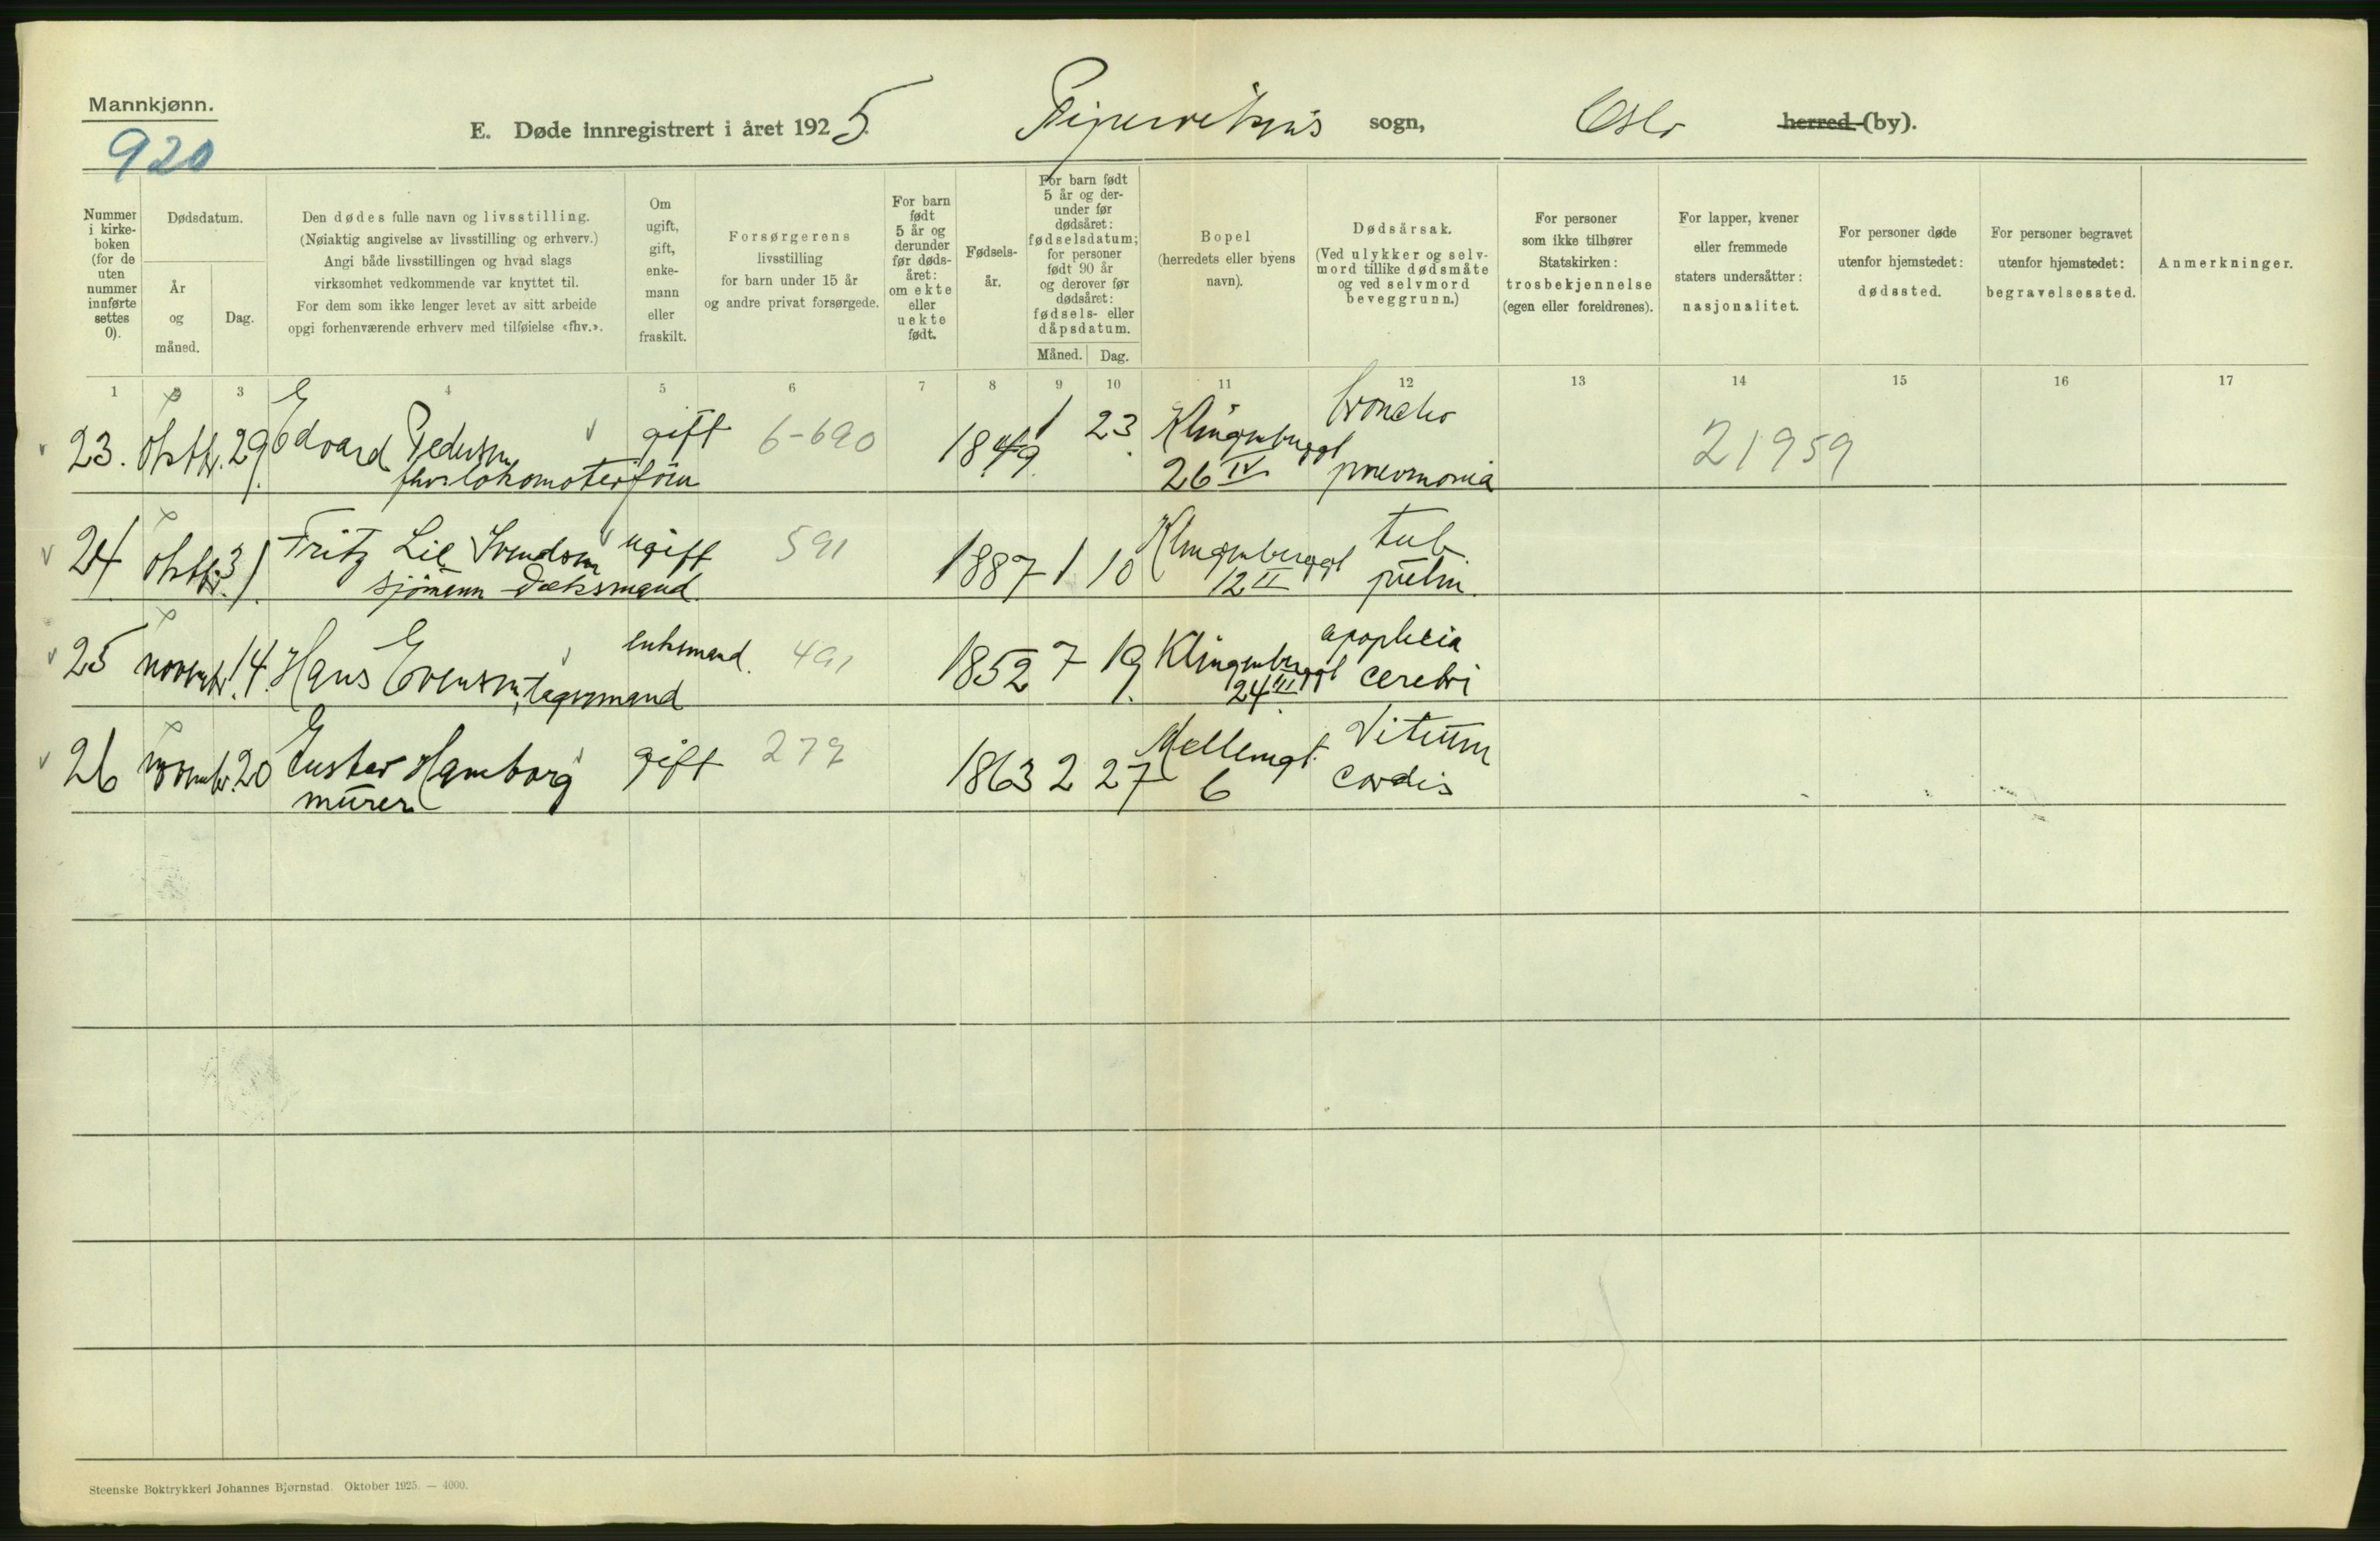 Mannkjønn.
920
E. Døde innregistrert i året 1925. Pipervikens sogn, Oslo herred (by).
Nummer i kirkeboken (for de uten nummer innførte settes 0).
Dødsdatum.
År og måned.
Dag.
Den dødes fulle navn og livsstilling.
(Nøiaktig angivelse av livsstilling og erhverv.)
Angi både livsstillingen og hvad slags
virksomhet vedkommende var knyttet til.
For dem som ikke lenger levet av sitt arbeide
opgi forhenværende erhverv med tilføielse «fhv.».
Om ugift, gift, enkemann eller fraskilt.
Forsørgerens
livsstilling
for barn under 15 år
og andre privat forsørgede.
For barn født 5 år og derunder før dødsåret: om ekte eller uekte født.
Fødselsår.
For barn født 5 år og derunder før dødsåret: fødselsdatum; for personer født 90 år og derover før dødsåret: fødsels- eller dåpsdatum.
Måned. Dag.
Bopel
(herredets eller byens
navn).
Dødsårsak.
(Ved ulykker og selvmord tillike dødsmåte og ved selvmord beveggrunn.)
For personer
som ikke tilhører
Statskirken:
trosbekjennelse
(egen eller foreldrenes).
For lapper, kvener
eller fremmede
staters undersåtter:
nasjonalitet.
For personer døde
utenfor hjemstedet:
dødssted.
For personer begravet
utenfor hjemstedet:
begravelsessted.
Anmerkninger.
1 2 3 4 5 6 7 8 9 10 11 12 13 14 15 16 17
23. Oktbr. 29. Edvard Pedersen gift 6-690 1849 1 23. Klingenberggt broncho 21959
fhv. lokomotivfører 26 IV pneumonia
24 Oktbr. 31. Fritz Lie Svendsen ugift 591 1887 1 10 Klingenberggt tub.
sjömann Dæksmand 12 II pulm.
25 novembr. 14. Hans Evensen, lagermand enkemand. 491 1852 7 19. Klingenberggt apoplexia
24 III cerebri
26 novembr. 20 Gustav Hamborg gift 279 1863 2 27 Mellemgt. Vitium
murer 6 cordis
Steenske Boktrykkeri Johannes Bjørnstad. Oktober 1925. — 4000.